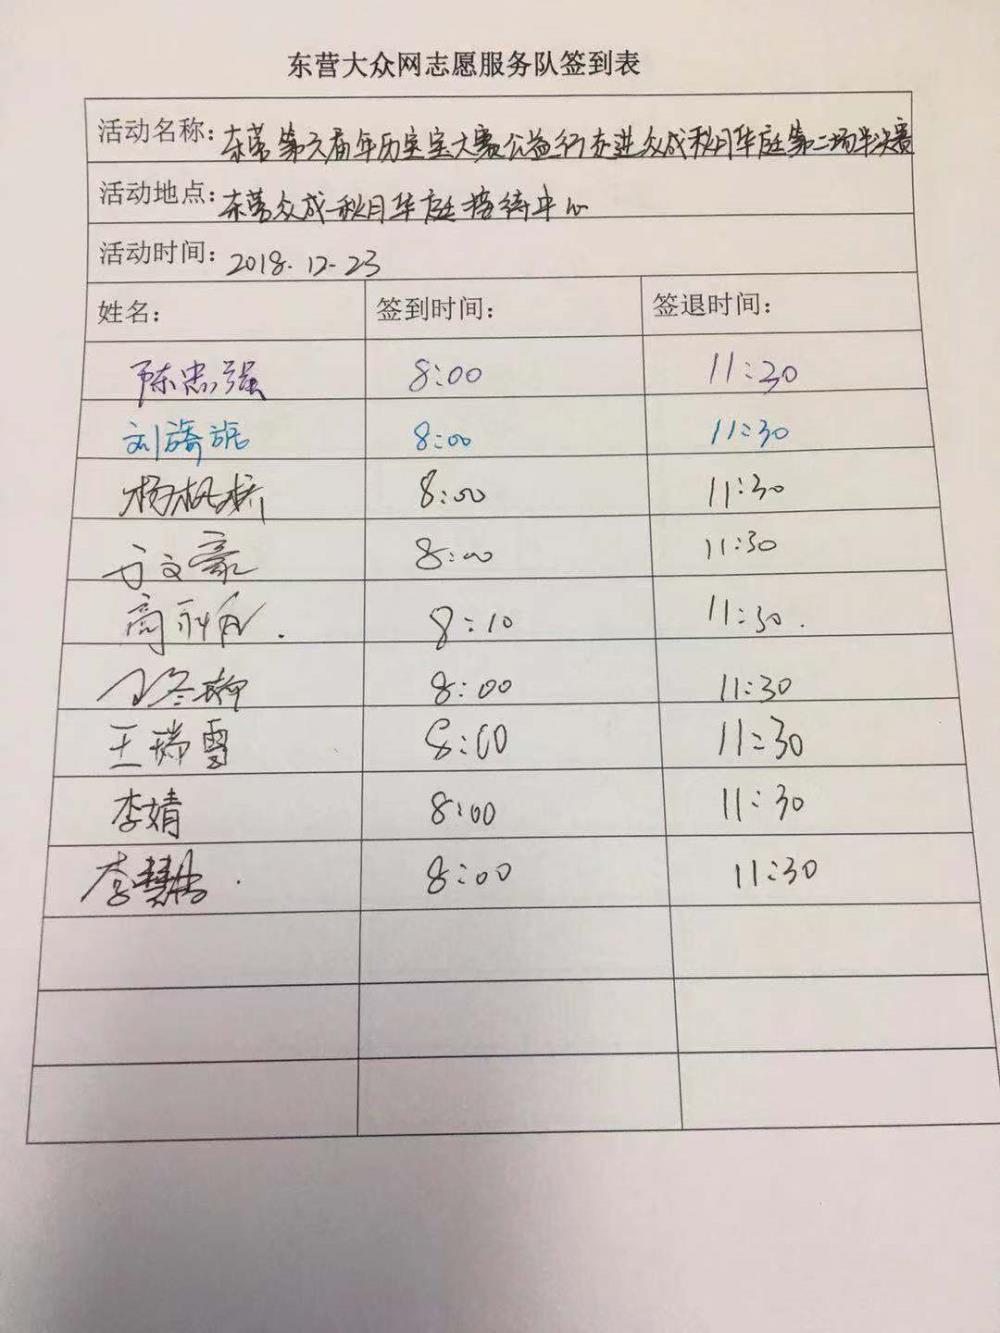 东营大众网志愿服务队签到表
活动名称：东营第六届年历宝宝大赛公益行走进众成秋月华庭第二场半决赛
活动地点：东营众成秋月华庭接待中心
活动时间：2018.12-23
姓名： 签到时间： 签退时间：
陈忠强 8:00 11:30
刘 8:00 11:30
杨枫桥 8:00 11:30
于文豪 8:00 11:30
高 8:10 11:30.
8:00 11:30
王瑞雪 8:00 11:30
李婧 8:00 11:30
李慧 8:00 11:30